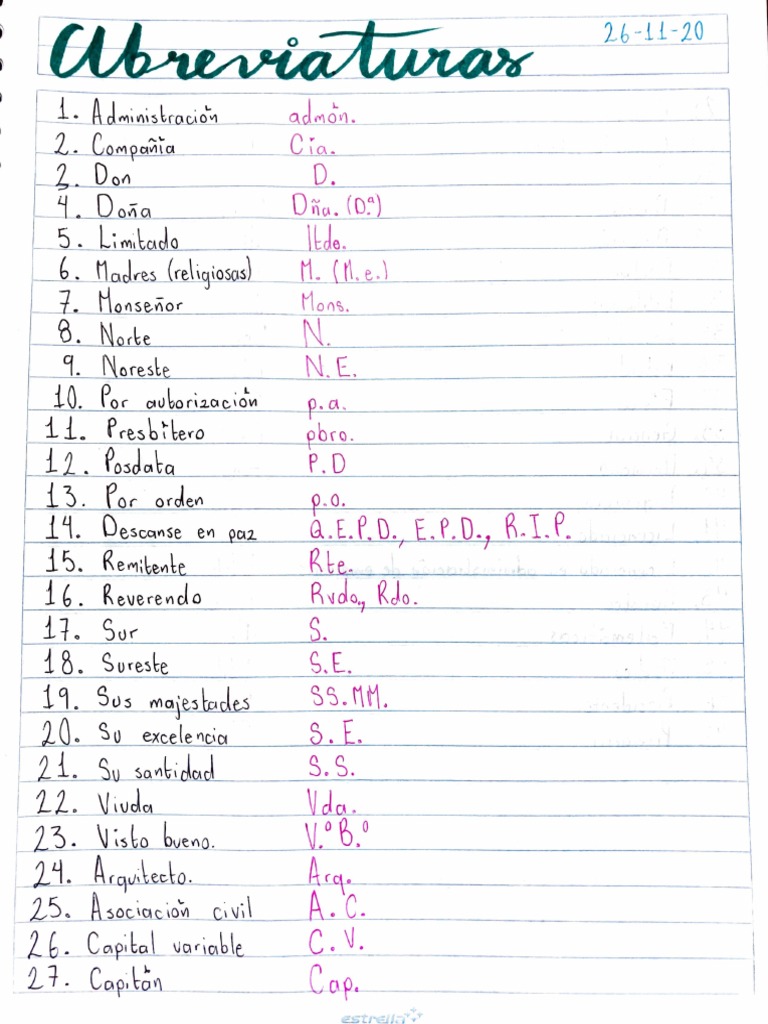 Abreviaturas
26-11-20
1. Administración admón.
2. Compañía Cía.
3. Don D.
4. Doña Dña. (D.ª)
5. Limitado ltdo.
6. Madres (religiosas) M. (M.e.)
7. Monseñor Mons.
8. Norte N.
9. Noreste N.E.
10. Por autorización p.a.
11. Presbítero pbro.
12. Posdata P.D
13. Por orden p.o.
14. Descanse en paz Q.E.P.D., E.P.D., R.I.P.
15. Remitente Rte.
16. Reverendo Rvdo, Rdo.
17. Sur S.
18. Sureste S.E.
19. Sus majestades SS.MM.
20. Su excelencia S.E.
21. Su santidad S.S.
22. Viuda Vda.
23. Visto bueno. V.º B.º
24. Arquitecto. Arq.
25. Asociación civil A.C.
26. Capital variable C.V.
27. Capitán Cap.
estrella